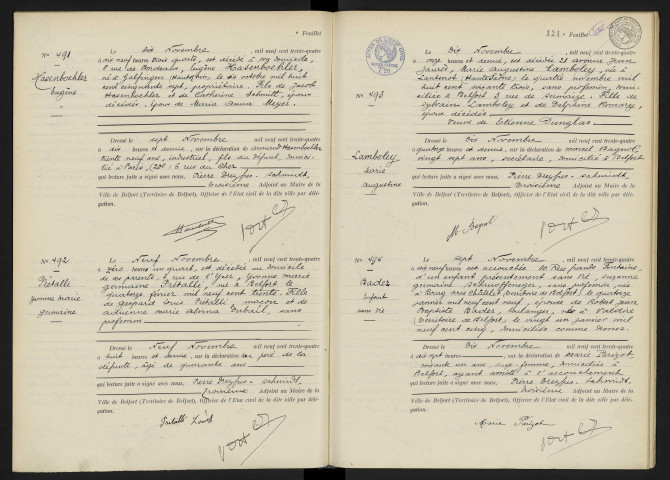 Feuillet
No 491
Hasenboehler
Eugène
Le six Novembre, mil neuf cent trente-quatre
à dix neuf heures trois quarts, est décédé à son domicile,
8 rue de Bordeaux, Eugène Hasenboehler,
né à Galfingen (Haut-Rhin), le six octobre mil huit
cent cinquante sept, propriétaire. Fils de Jacob
Hasenboehler et de Catherine Schmitt, époux
décédés. Epoux de Maria Anna Meyer.
Dressé le sept Novembre, mil neuf cent trente-quatre
à dix heures et demie, sur la déclaration de Armand Hasenboehler
trente neuf ans, industriel, fils du défunt, domici-
lié à Paris, 6 rue du Cher
qui lecture faite a signé avec nous, Pierre Dreyfus-Schmidt,
troisième Adjoint au Maire de la
Ville de Belfort (Territoire de Belfort), Officier de l'Etat civil de la dite ville par délé-
gation.
No 492
Prétalli
Yvonne Marie
Germaine
Le Neuf Novembre, mil neuf cent trente-quatre
à zéro heures un quart, est décédée au domicile
de ses parents, rue de l'Yser, Yvonne Marie
Germaine Prétalli, née à Belfort le
quatorze février mil neuf cent trente. Fille
de Gaspard Louis Prétalli, maçon et de
Adrienne Marie Dubail, sans
profession
Dressé le Neuf Novembre, mil neuf cent trente-quatre
à huit heures et demie, sur la déclaration du père de la
défunte, âgé de quarante ans
qui lecture faite a signé avec nous, Pierre Dreyfus-Schmidt,
troisième Adjoint au Maire de la
Ville de Belfort (Territoire de Belfort), Officier de l'Etat civil de la dite ville par délé-
gation.
124 Feuillet
No 493
Lamboley
Marie
Augustine
Le Dix Novembre, mil neuf cent trente-quatre
à onze heures et demie, est décédée 21 avenue Jean
Jaurès, Marie Augustine Lamboley, née à
Lantenot (Haute-Saône), le quatre novembre mil
huit cent soixante trois, sans profession, domi-
ciliée à Belfort, rue de . Fille de
Sylvain Lamboley et de Delphine ,
époux décédés
Veuve de Etienne
Dressé le Dix Novembre, mil neuf cent trente-quatre
à quatorze heures et demie, sur la déclaration de Marcel ,
vingt sept ans, secrétaire, domicilié à Belfort
qui lecture faite a signé avec nous, Pierre Dreyfus-Schmidt,
troisième Adjoint au Maire de la
Ville de Belfort (Territoire de Belfort), Officier de l'Etat civil de la dite ville par délé-
gation.
No 494
Bader
Enfant
sans vie
Le sept Novembre, mil neuf cent trente-quatre
à dix neuf heures est accouchée 10 Rue Grande Fontaine,
d'un enfant présentement sans vie, Suzanne
Germaine , sans profession, née
à Bourg sous Châtelet (Territoire de Belfort), le quatorze
janvier mil neuf cent neuf, épouse de Robert Jean
Baptiste Bader, boulanger, né à Valdoie
(Territoire de Belfort), le vingt un janvier mil
neuf cent cinq, domiciliés comme dessus.
Dressé le Dix Novembre, mil neuf cent trente-quatre
à dix sept heures, sur la déclaration de Marie Perizot
ans, sage-femme, domiciliée à
Belfort, ayant assisté à l'accouchement
qui lecture faite a signé avec nous, Pierre Dreyfus-Schmidt,
troisième Adjoint au Maire de la
Ville de Belfort (Territoire de Belfort), Officier de l'Etat civil de la dite ville par délé-
gation.